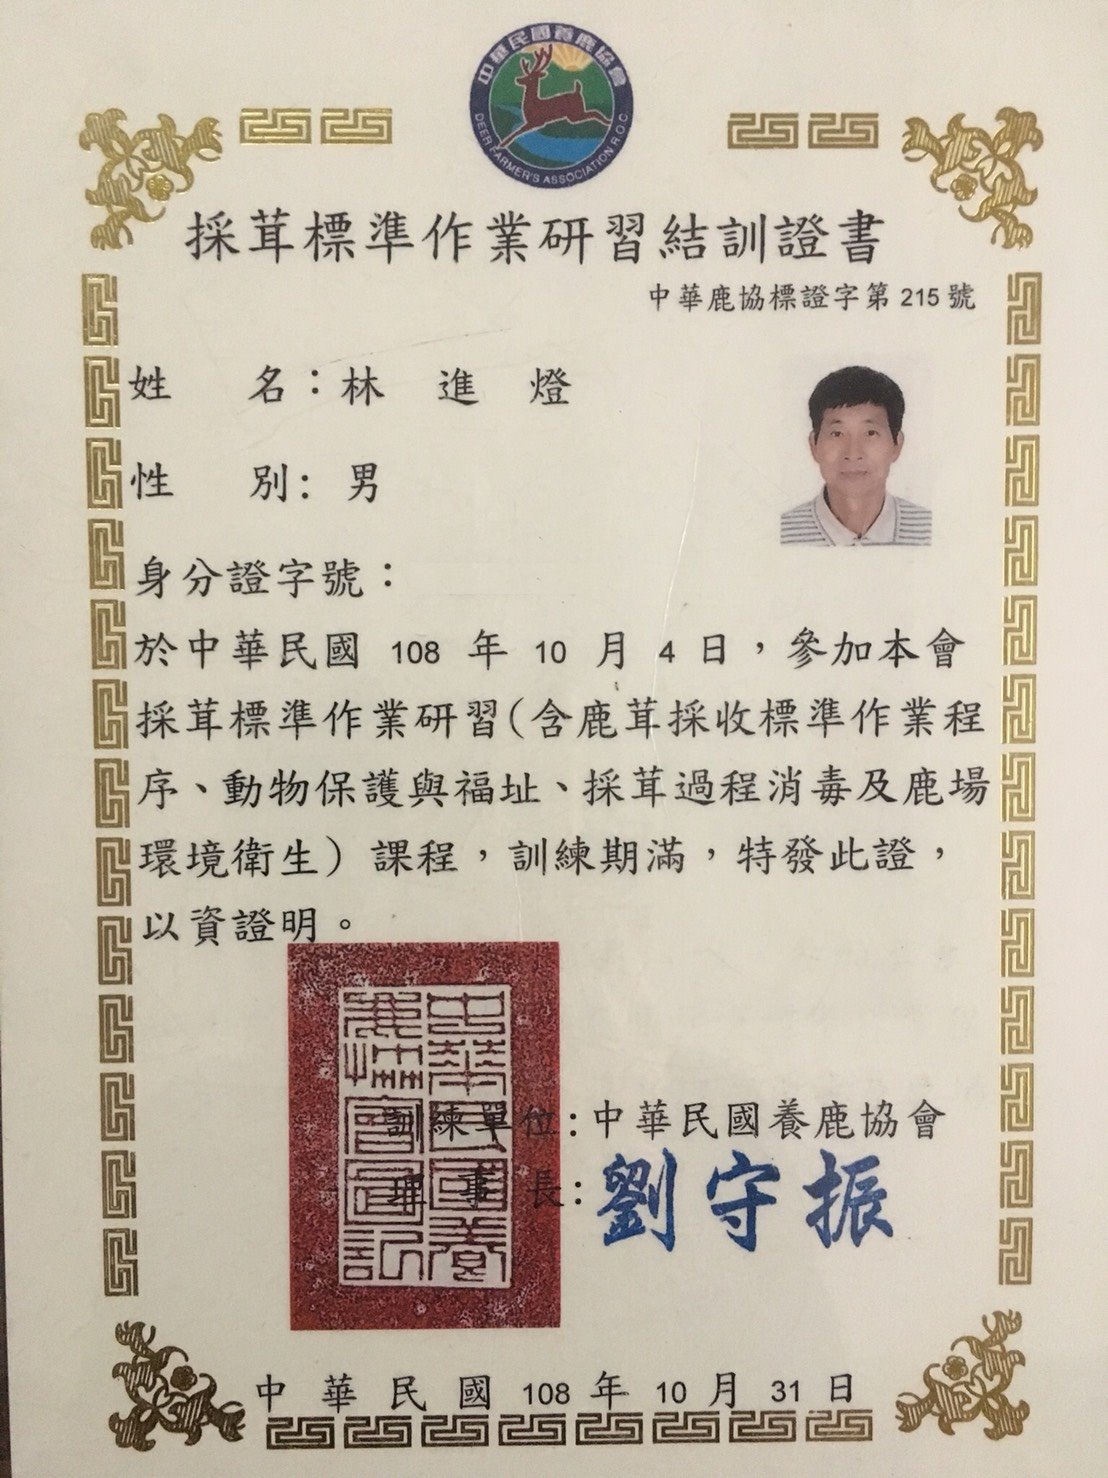 中華民國養鹿協會
DEER FARMER'S ASSOCIATION R.O.C.
採茸標準作業研習結訓證書
中華鹿協標證字第 215 號
姓 名：林 進 燈
性 別： 男
身分證字號：
於中華民國 108 年 10 月 4 日，參加本會
採茸標準作業研習(含鹿茸採收標準作業程
序、動物保護與福址、採茸過程消毒及鹿場
環境衛生) 課程，訓練期滿，特發此證，
以資證明。
中華民國養
鹿協會圖記
訓練單位：中華民國養鹿協會
理 事 長：劉守振
中 華 民 國 108 年 10 月 31 日